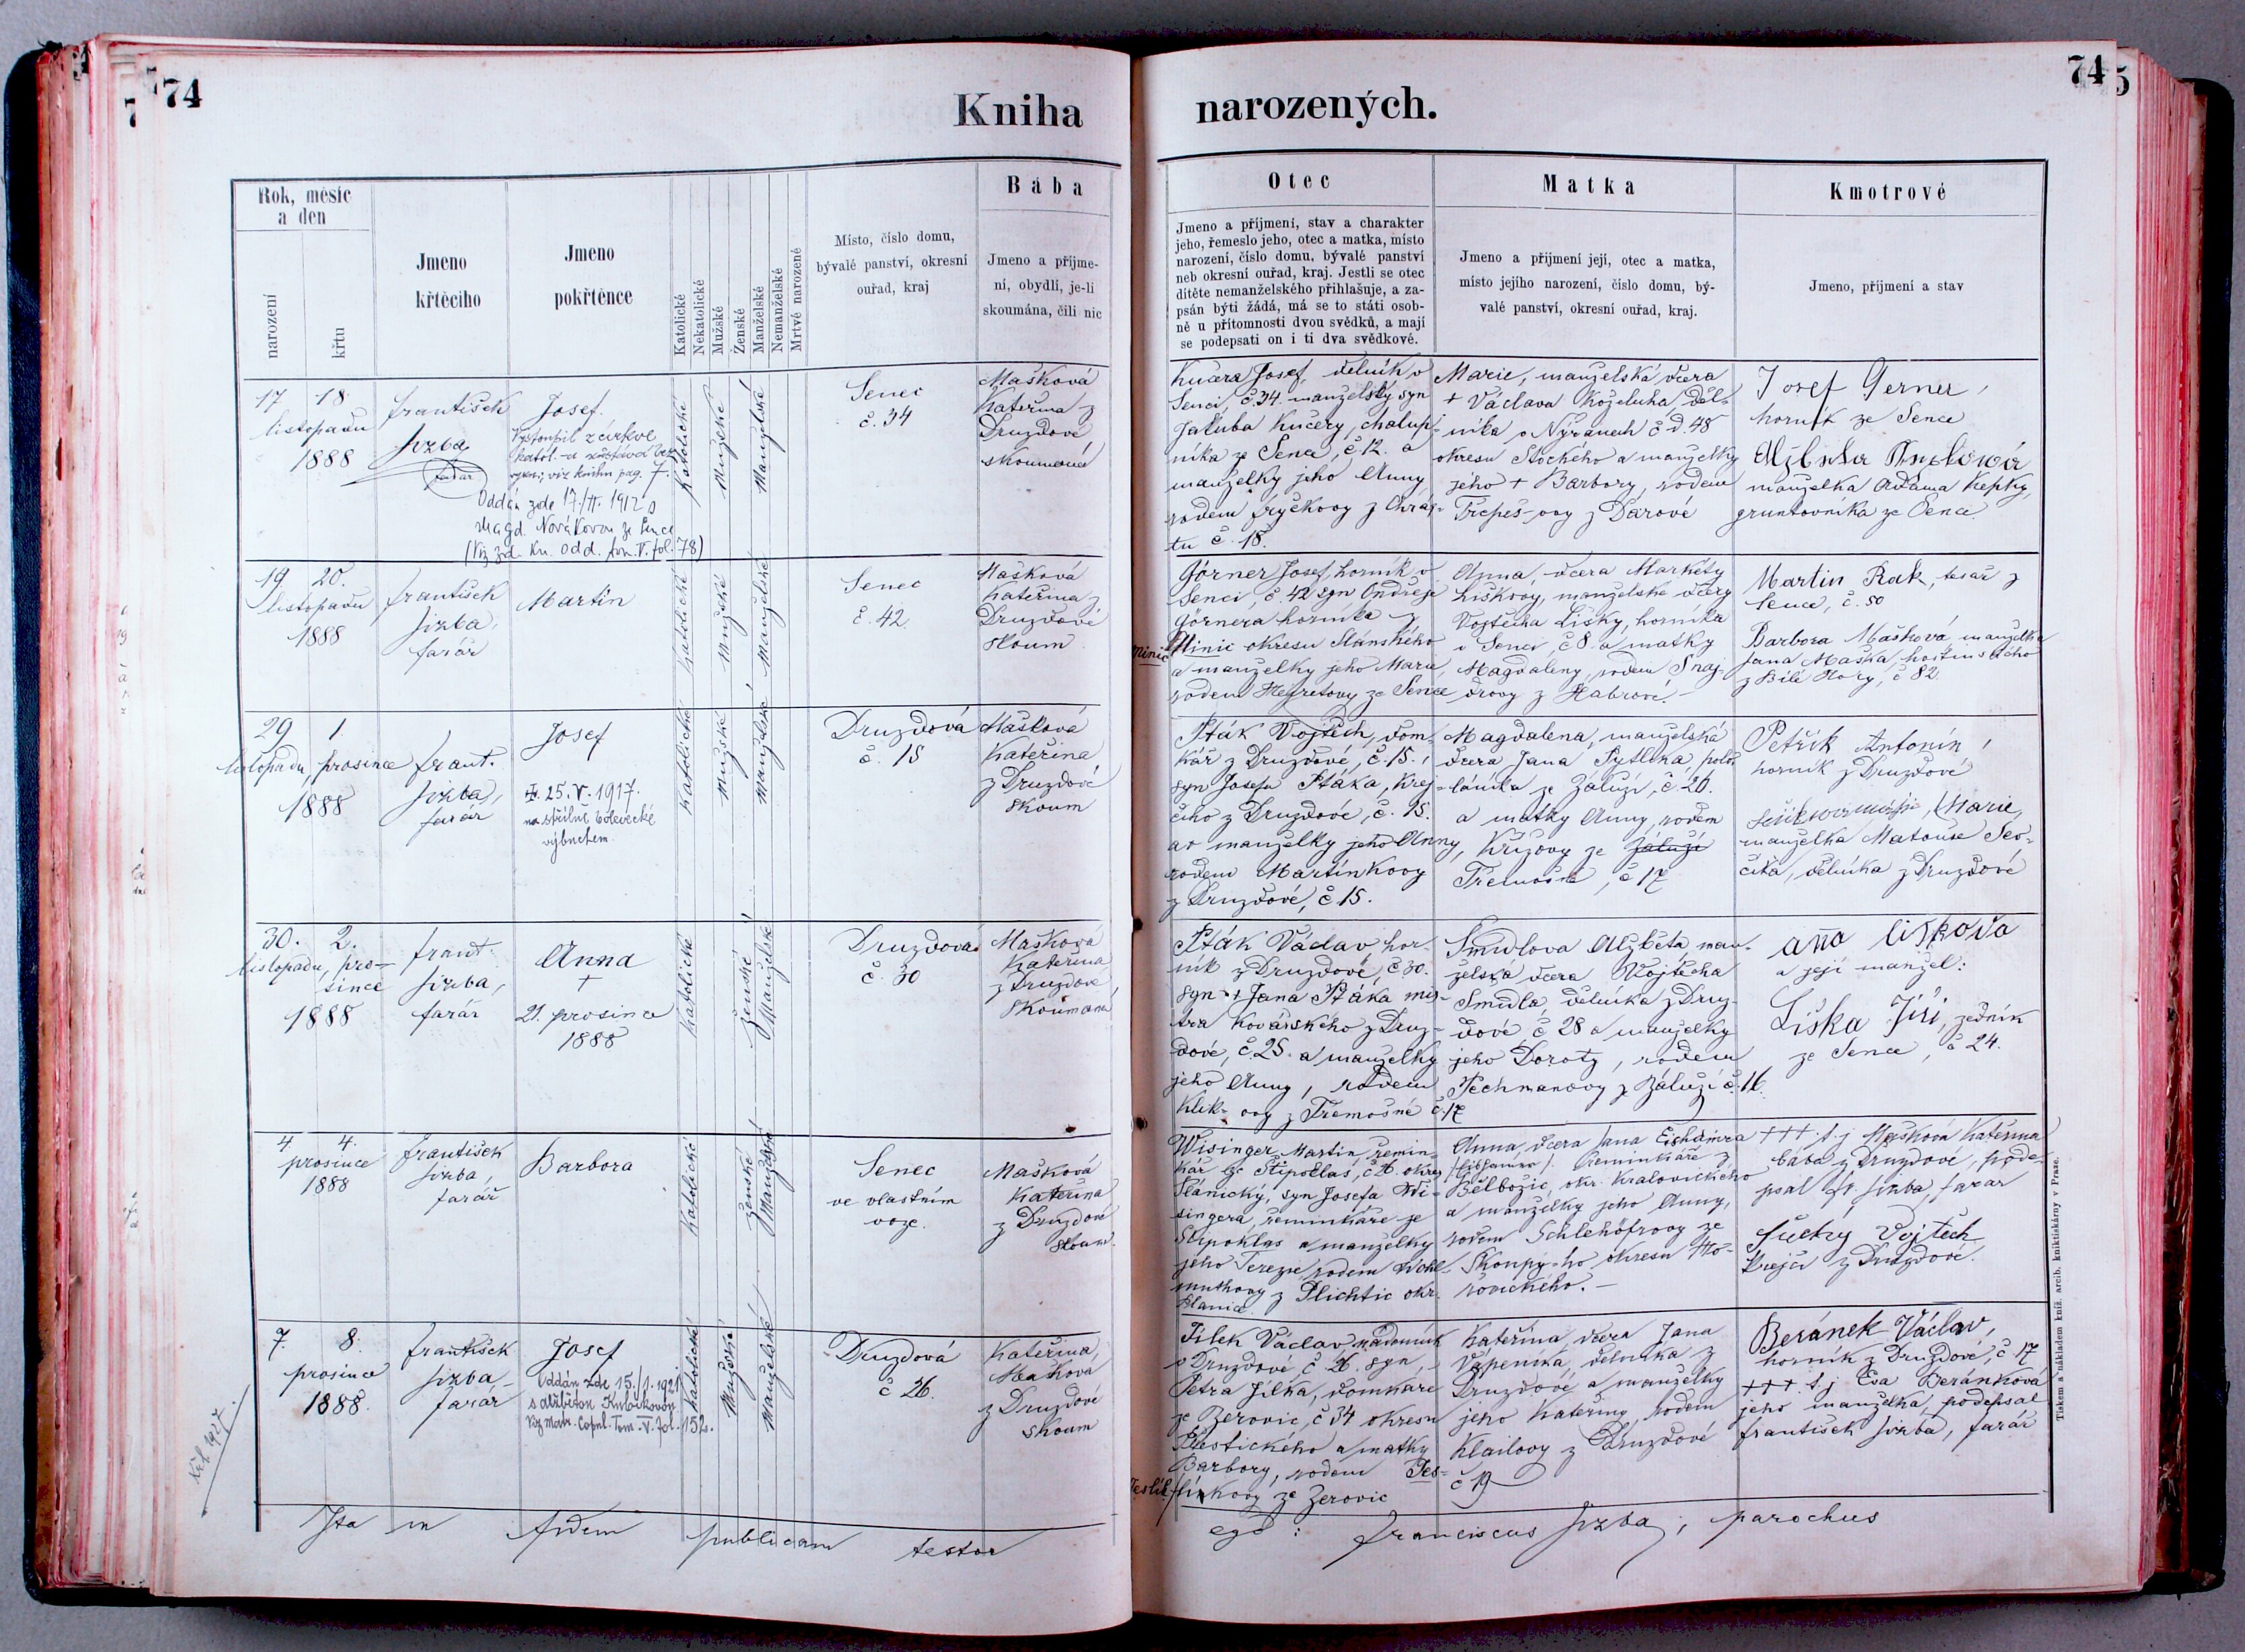 74
Kniha
narozených.
74
5
Rok, měsíc
a den
narození
křtu
Jmeno
křtěcího
Jmeno
pokřtěnce
Katolické
Nekatolické
Mužské
Ženské
Manželské
Nemanželské
Mrtvé narozené
Místo, číslo domu,
bývalé panství, okresní
ouřad, kraj
Bába
Jmeno a příjme-
ní, obydlí, je-li
skoumána, čili nic
Otec
Jmeno a příjmení, stav a charakter
jeho, řemeslo jeho, otec a matka, místo
narození, číslo domu, bývalé panství
neb okresní ouřad, kraj. Jestli se otec
dítěte nemanželského přihlašuje, a za-
psán býti žádá, má se to státi osob-
ně u přítomnosti dvou svědků, a mají
se podepsati on i ti dva svědkové.
Matka
Jmeno a příjmení její, otec a matka,
místo jejího narození, číslo domu, bý-
valé panství, okresní ouřad, kraj.
Kmotrové
Jmeno, příjmení a stav
17 18
listopadu
1888
František
Sizba
farář
Josef.
Vystoupil z církve
katol. a zůstává bez
vyzn; viz knihu pag. 7.
Oddán zde 17/II. 1912 s
Magd. Novákovou ze Sence
(Viz zd. kn. odd. tom. V. fol. 78)
Katolické
Mužské
Manželské
Senec
č. 34
Mašková
Kateřina z
Druzdové
skoumaná
Kučera Josef, dělník v
Senci, č. 34 manželský syn
Jakuba Kučery, chalup-
níka ze Sence, č. 12. a
manželky jeho Anny
rodem Fryčkovy z Chrás-
tu č. 18.
Marie, manželská dcera
+ Václava Koželuha děl-
níka v Nýřanech č. d. 48
okresu Stockého a manželky
jeho + Barbory, rodem
Třepeš-ovy z Darové
Josef Gerner,
horník ze Sence
manželka Adama Kepky,
gruntovníka ze Sence.
19 20.
listopadu
1888
František
Sizba,
farář
Martin
Katolické
Mužské
Manželské
Senec
č. 42
Mašková
Kateřina z
Druzdové
skoum
Görner Josef, horník v
Senci, č. 42 syn Ondřeje
Görnera horníka z
Minic okresu Slánského
a manželky jeho Marie,
rodem Hegretovy ze Sence
Minic
Anna, dcera Markéty
Liškovy, manželské dcery
Vojtěcha Lišky, horníka
v Senci, č 8. a matky
Magdaleny, rodem Šnaj-
drovy z Habrové. –
Martin Rak, tesař z
Sence, č. 50
Barbora Mašková manželka
Jana Maška hostinského
z Bílé Hory, č 82
29 1.
listopadu, prosince
1888
Frant.
Sizba,
farář
Josef
25. V. 1917.
na střelnici bolevecké
výbuchem.
Katolické
Mužské
Manželské
Druzdová
č. 15
Mašková
Kateřina
z Druzdové
skoum
Pták Vojtěch, dom-
kář z Druzdové, č. 15.,
syn Josefa Ptáka, krej-
čího z Druzdové, č. 15.
a manželky jeho Anny,
rodem Martínkovy
z Druzdové, č. 15.
Magdalena, manželská
dcera Jana Pytlíka, polo-
láníka ze Záluží, č. 20.
a matky Anny, rodem
Křížovy ze Záluží
Třemošné, č 17
Petřík Antonín,
horník z Druzdové
Marie,
manželka Matouše Šev-
číka, dělníka z Druzdové
30. 2.
listopadu, pro-
since
1888
Frant
Sizba,
farář
Anna
+
21. prosince
1888
Katolické
Ženské
Manželské
Druzdová
č. 30
Mašková
Kateřina
z Druzdové,
skoumaná
Pták Václav hor-
ník z Druzdové, č 30.
syn + Jana Ptáka mis-
tra kovářského z Druz-
dové, č. 25. a manželky
jeho Anny, rodem
Klik-ovy z Třemošné č. 17
Šmídlova Alžběta, man-
želská dcera Vojtěcha
Šmídla, dělníka z Druz-
dové, č 28 a manželky
jeho Doroty, rodem
Techmanovy z Záluží č. 16.
ana liškova
a její manžel:
Liška Jiří, zedník
ze Sence, č 24.
4. 4.
prosince
1888
František
Sizba,
farář
Barbora
Katolické
Ženské
Manželské
Senec
ve vlastním
voze.
Mašková
Kateřina
z Druzdové
skoum.
Wisinger Martin řemin-
kář ze Štipoklas, č 26. okres
Plánický, syn Josefa Wi-
singera, řeminkáře ze
Štipoklas a manželky
jeho Terezie, rodem Wohl-
muthovy z Plichtic okr.
Planice.
Anna, dcera Jana
řeminkáře z
Bělbožic, okr. Kralovického
a manželky jeho Anny,
rodem Schlehöfrovy ze
Skoupý-ho okresu Ho-
řovického. –
+++ t. j Mašková Kateřina
bába z Druzdové, pode-
psal Fr. Sizba, farář
Suchý Vojtěch
Krejčí z Druzdové.
7. 8.
prosince
1888.
František
Sizba
farář
Josef
Oddán zde 15./I. 1921
s Alžbětou
Viz Matr. Copul. Tom. V. fol. 152.
Katolické
Mužské
Manželské
Druzdová
č 26.
Kateřina,
Mašková
z Druzdové
skoum
Jílek Václav nádeník
v Druzdové č 26. syn,
Petra Jílka, domkáře
ze Žerovic, č 34 okresu
Přestického a matky
Barbory, rodem Tes-
línkovy ze Žerovic
Kateřina, dcera Jana
Vápeníka, dělníka z
Druzdové a manželky
jeho Kateřiny, rodem
Klailovy z Druzdové
č 19
Beránek Václav,
horník z Druzdové, č 17
+++ t j Eva Beránková
jeho manželka, podepsal
František Sizba, farář
Ita in fidem publicam testor
ego: Franciscus Sizba, parochus
Tiskem a nákladem kníž. arcib. knihtiskárny v Praze.